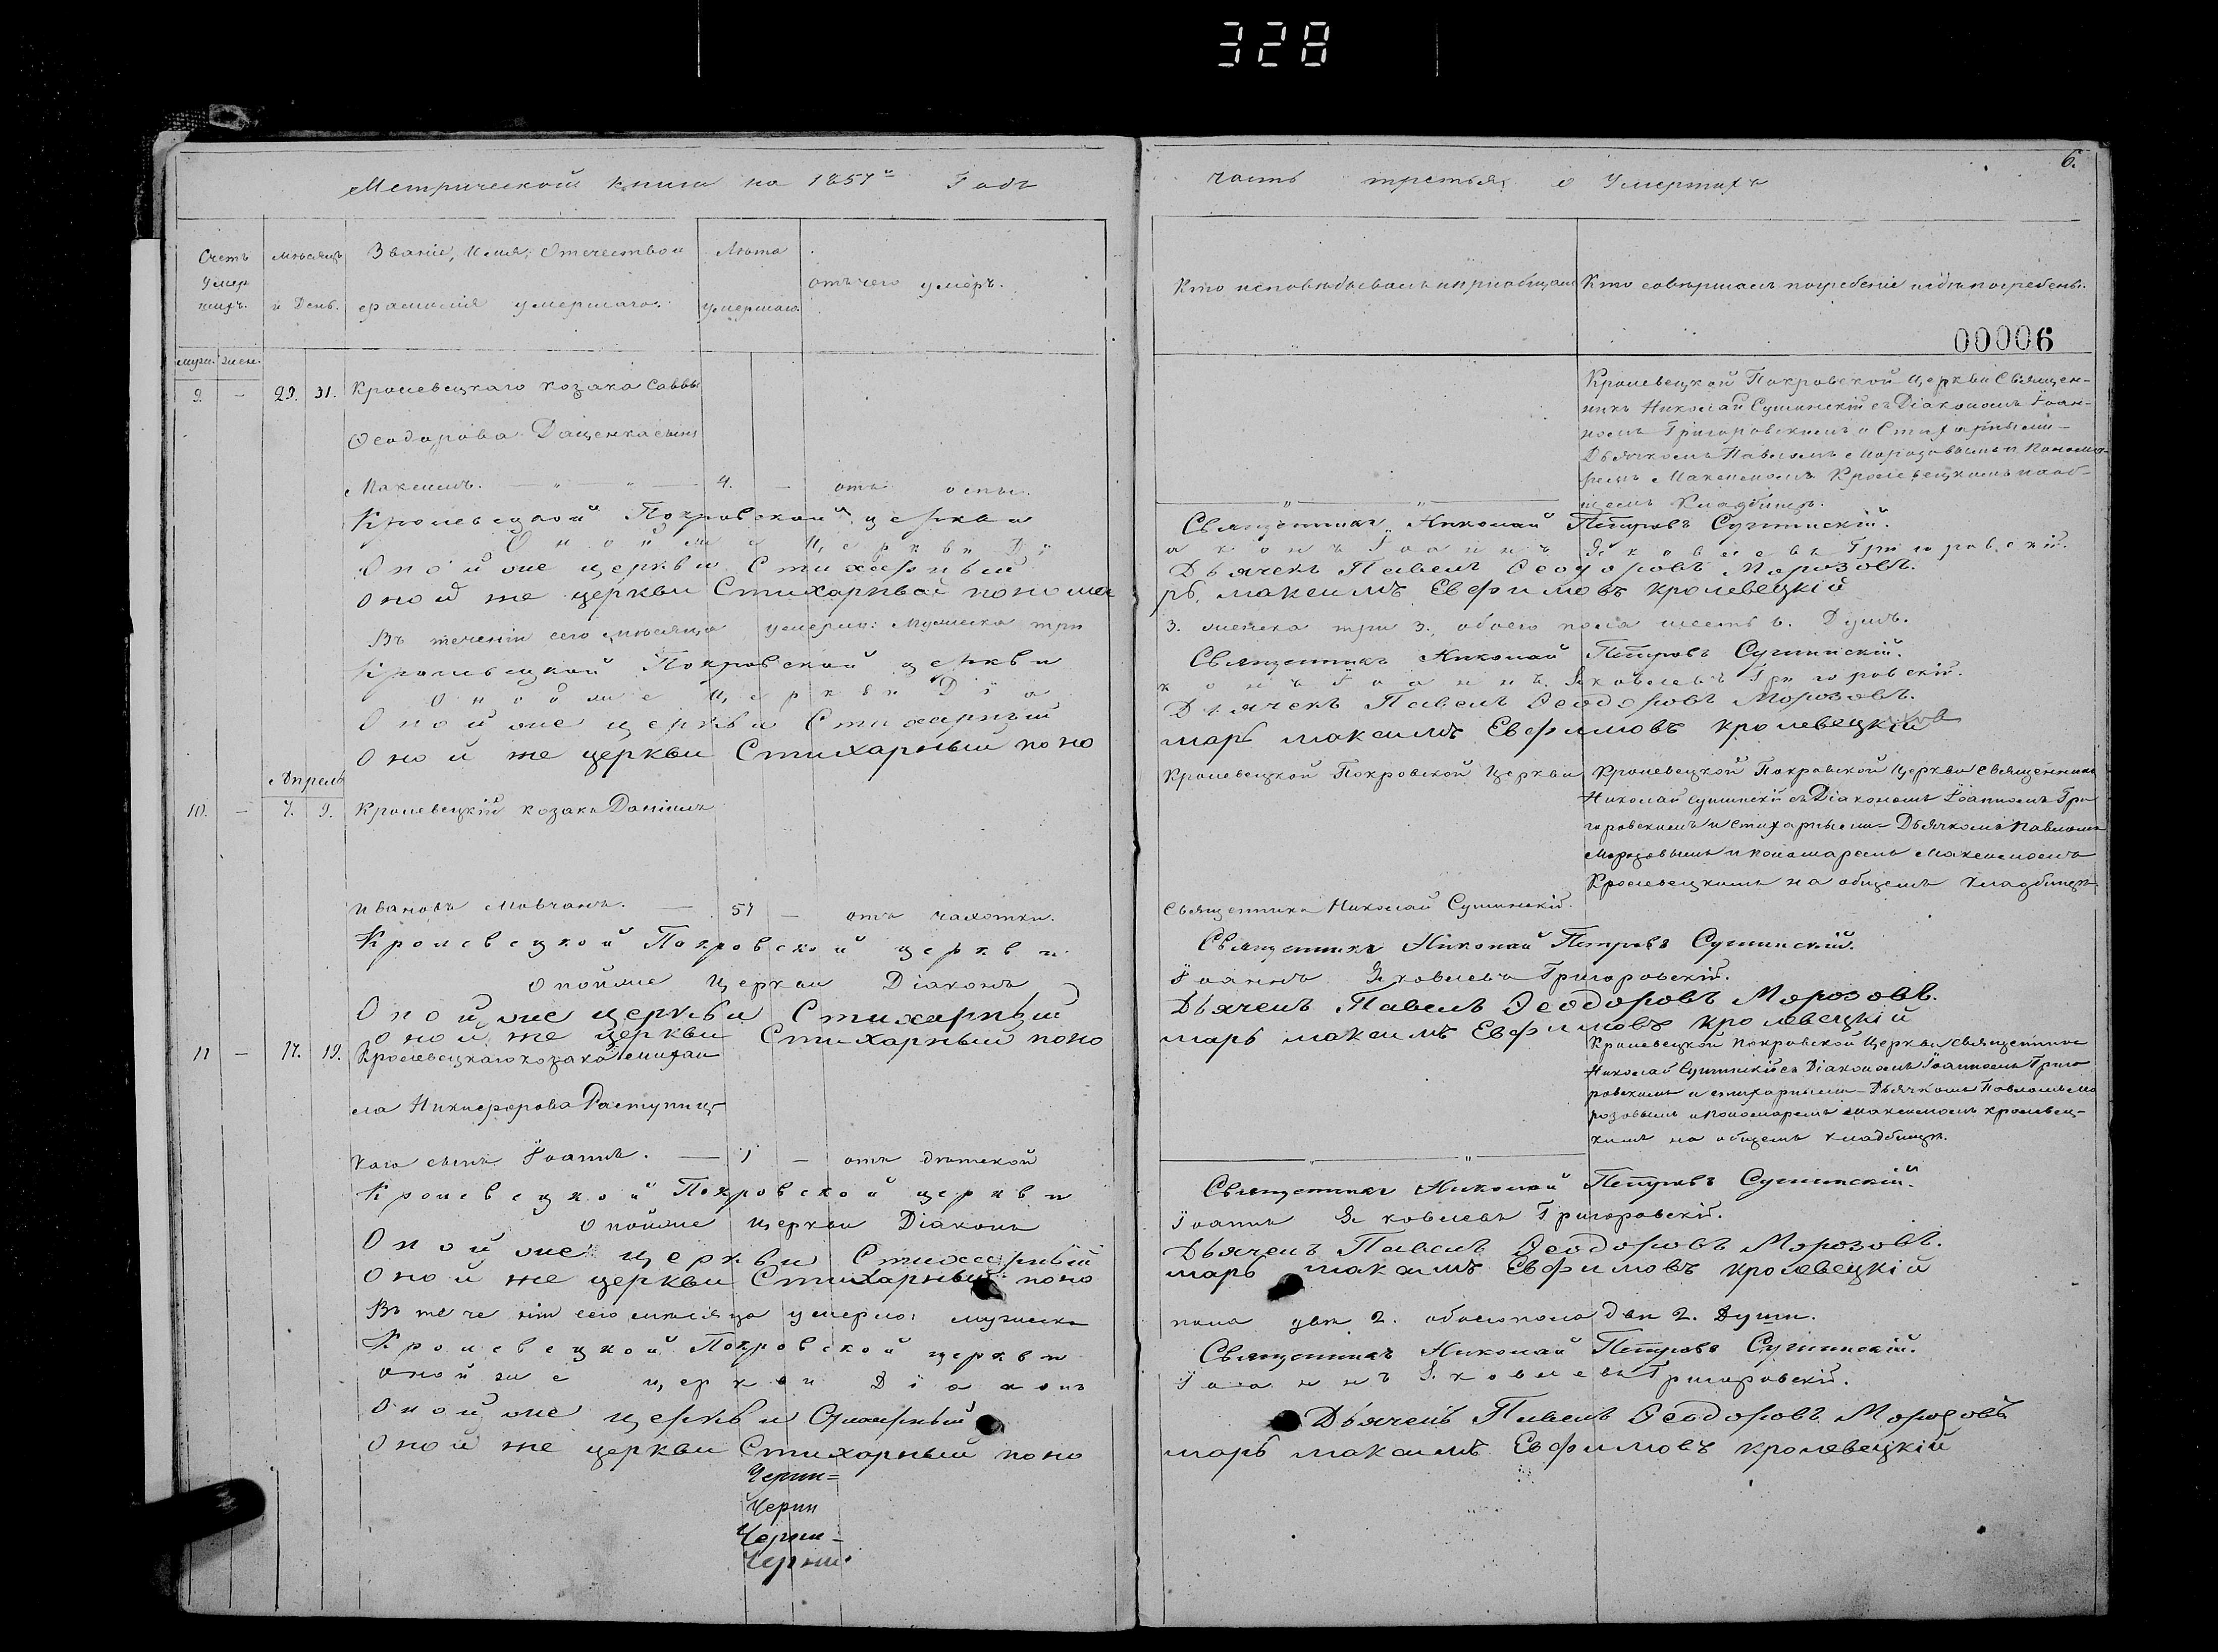 328
6.
Метрической книги на 1857й Годъ
часть третья, о Умершихъ
Счетъ умер шихъ.
муж. жен.
мѣсяцъ и День.
Званіе, Имя, Отечество и фамилія умершаго.
Лѣта умершаго.
отъ чего умеръ.
Кто исповѣдывалъ и пріобщалъ
Кто совершалъ погребеніе и гдѣ погребены.
00006
9. — 29. 31. Кролевецкаго козака Саввы
Ѳеодорова Даценка сынъ
Максимъ. — „ — „ — 4. — отъ оспы.
— „ — „ —
Кролевецкой Покровской Церкви Священ-
никъ Николай Сушинскій съ Діакономъ Іоан-
номъ Григоровскимъ и Стихарными—
Дьячкомъ Павломъ Морозовымъ и Понома-
ремъ Максимомъ Кролевецкимъ на об-
щемъ Кладбищѣ.
Кролевецкой Покровской церкви Священникъ Николай Петровъ Сушинскій.
Оной же Церкви Діаконъ Іоаннъ Яковлевъ Григоровскій.
Оной же церкви Стихарный Дьячекъ Павелъ Ѳеодоровъ Морозовъ.
оной же церкви Стихарный пономарь максимъ Евфимовъ кролевецкій
Въ теченіи сего мѣсяца умерло: Мужеска три 3. женска три 3., обоего пола шесть 6. Душъ.
Кролевецкой Покровской церкви Священникъ Николай Петровъ Сушинскій.
Оной же Церкви Діаконъ Іоаннъ Яковлевъ Григоровскій.
Оной же церкви Стихарный Дьячекъ Павелъ Ѳеодоровъ Морозовъ.
Оной же церкви Стихарный пономарь максимъ Евфимовъ кролевецкій
Апрель
10. — 7. 9. Кролевецкій козакъ Даніилъ
Ивановъ Мовчанъ. — 57 — отъ чахотки.
Кролевецкой Покровской Церкви
Священникъ Николай Сушинскій.
Кролевецкой Покровской Церкви Священникъ
Николай Сушинскій съ Діакономъ Іоанномъ Гри
горовскимъ и Стихарными— Дьячкомъ Павломъ
Морозовымъ и Пономаремъ Максимомъ
Кролевецкимъ на общемъ кладбищѣ.
Кролевецкой Покровской церкви Священникъ Николай Петровъ Сушинскій.
Оной же Церкви Діаконъ Іоаннъ Яковлевъ Григоровскій.
Оной же церкви Стихарный Дьячекъ Павелъ Ѳеодоровъ Морозовъ.
оной же церкви Стихарный пономарь максимъ Евфимовъ кролевецкій
11 — 17. 19. Кролевецкаго козака Михаи
ла Никифорова Раступиц
каго сынъ Іоаннъ. — 1 — отъ дѣтской
— „ — „ —
Кролевецкой Покровской Церкви Священникъ
Николай Сушинскій съ Діакономъ Іоанномъ Григо
ровскимъ и стихарными— Дьячкомъ Павломъ Мо
розовымъ и Пономаремъ Максимомъ Кролевец-
кимъ на общемъ кладбищѣ.
Кролевецкой Покровской церкви Священникъ Николай Петровъ Сушинскій.
Оной же Церкви Діаконъ Іоаннъ Яковлевъ Григоровскій.
Оной же церкви Стихарный Дьячекъ Павелъ Ѳеодоровъ Морозовъ.
Оной же церкви Стихарный пономарь максимъ Евфимовъ кролевецкій
Въ теченіи сего мѣсяца умерло: мужеска пола два 2. обоего пола два 2. Души.
Кролевецкой Покровской церкви Священникъ Николай Петровъ Сушинскій.
Оной же церкви Діаконъ Іоаннъ Яковлевъ Григоровскій.
Оной же церкви Стихарный Дьячекъ Павелъ Ѳеодоровъ Морозовъ
Оной же церкви Стихарный пономарь максимъ Евфимовъ кролевецкій